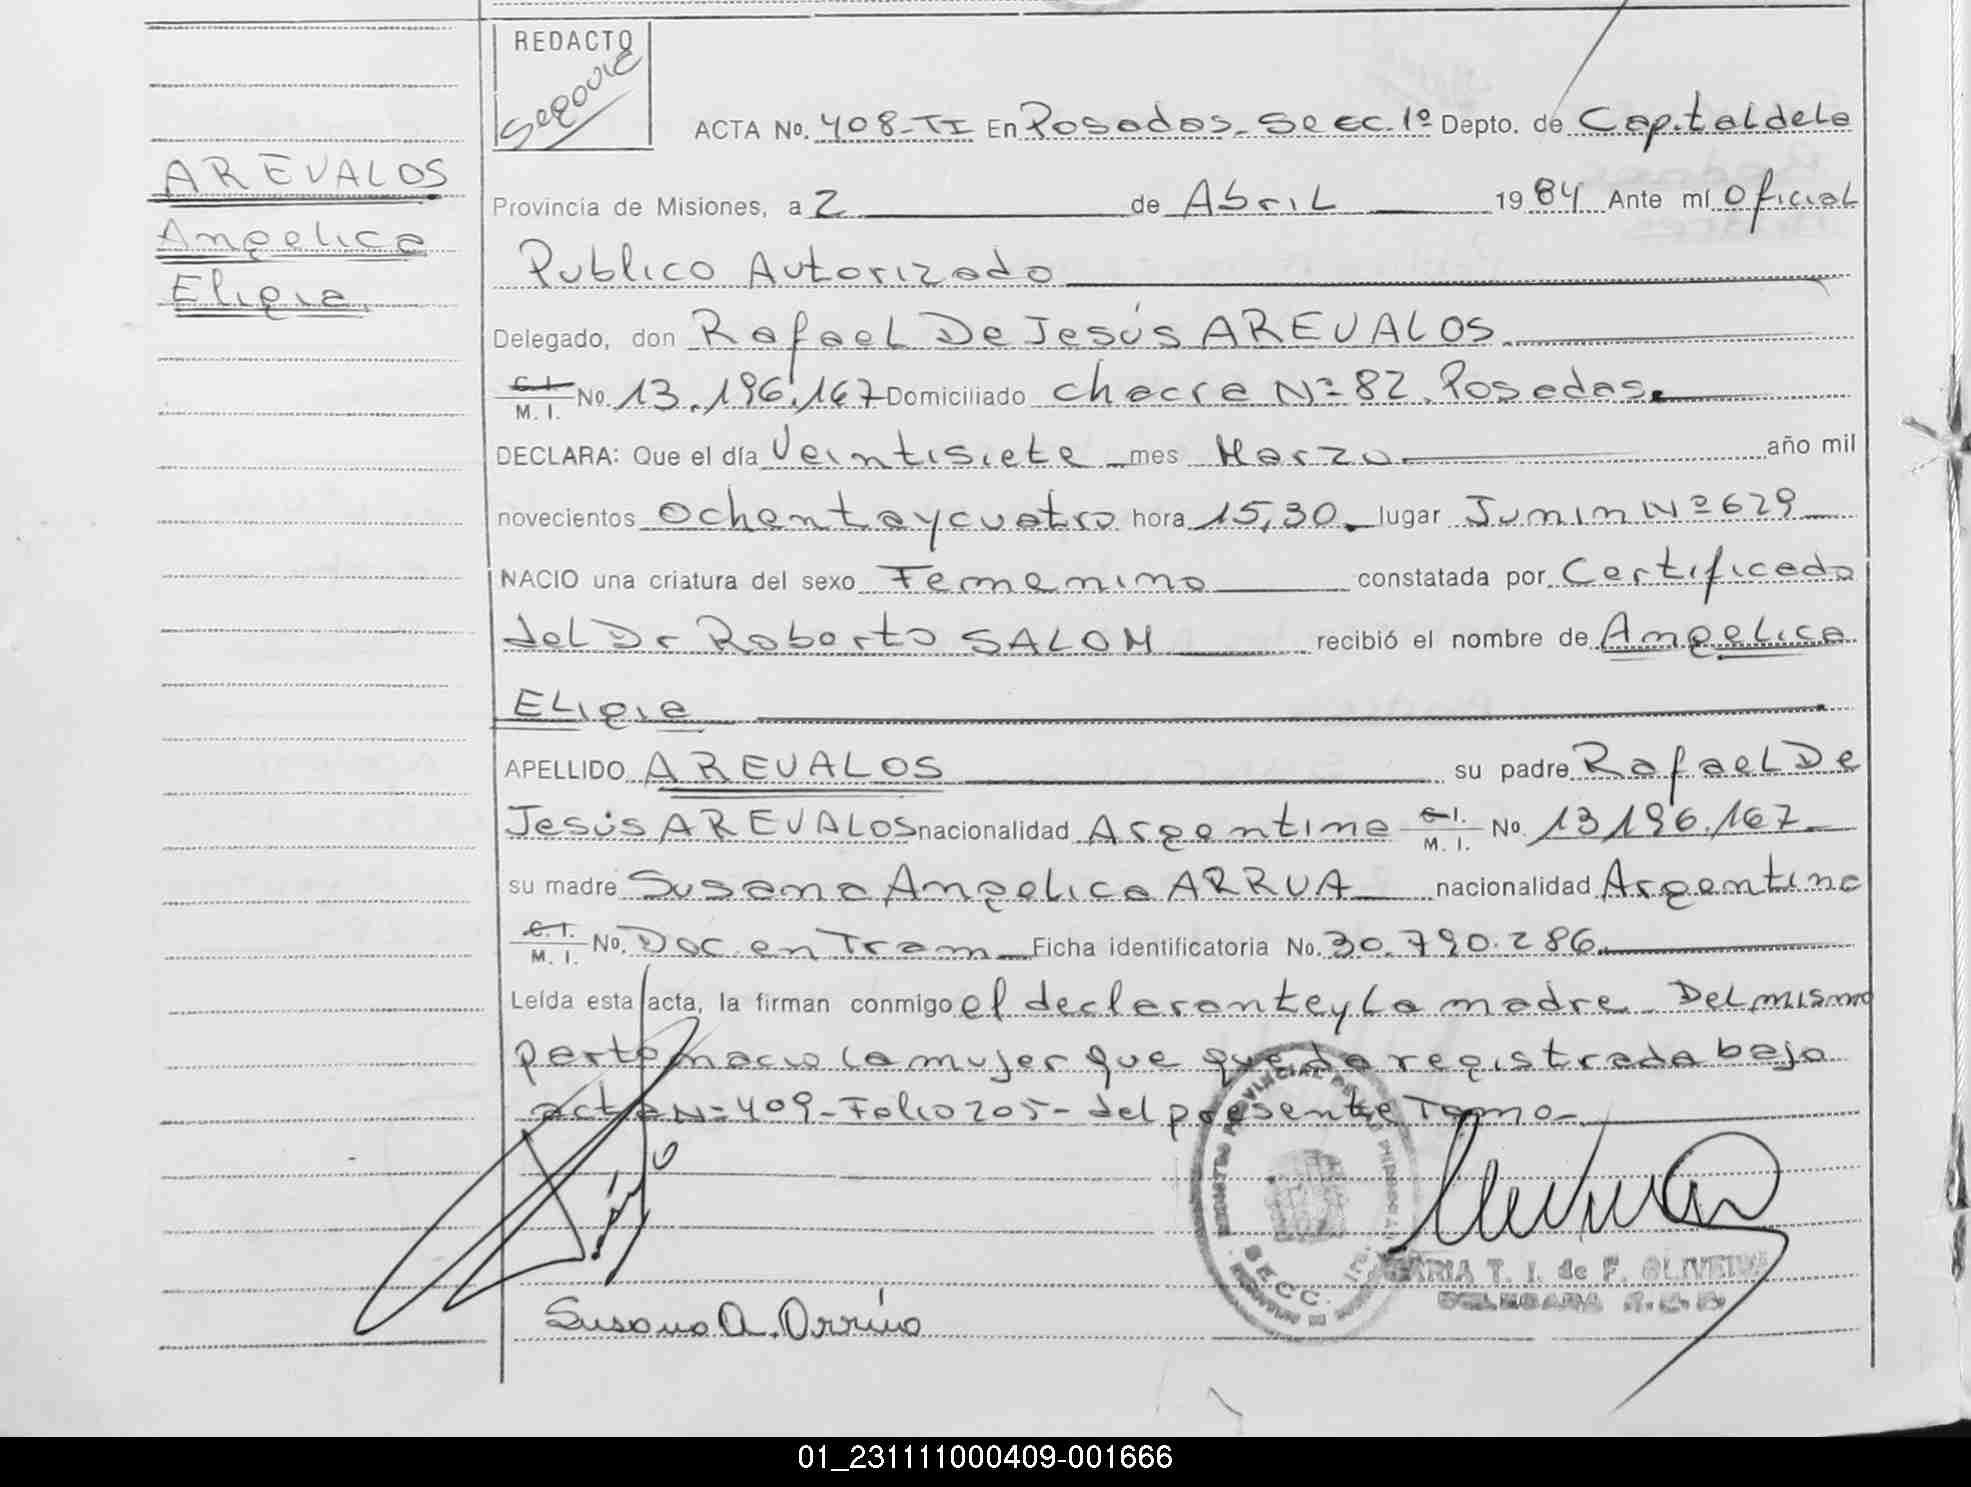 REDACTO
Segovia
ACTA No. 408-TI En Posadas Secc. 1º Depto. de Capital de la
AREVALOS
Angelica
Eligia
Provincia de Misiones, a 2 de Abril 1984 Ante mí Oficial
Publico Autorizado
Delegado, don Rafael De Jesús AREVALOS
C. I.
M. I. No. 13.196.167 Domiciliado chacra Nº 82. Posadas.
DECLARA: Que el día Veintisiete mes Marzo año mil
novecientos ochenta y cuatro hora 15,30 lugar Junin Nº 629
NACIO una criatura del sexo Femenino constatada por Certificado
del Dr Roberto SALOM recibió el nombre de Angelica
Eligia
APELLIDO AREVALOS su padre Rafael De
Jesús AREVALOS nacionalidad Argentina C. I. M. I. No. 13.196.167
su madre Susana Angelica ARRUA nacionalidad Argentina
C. I.
M. I. No. Doc. en Tram Ficha identificatoria No. 30.790.286
Leída esta acta, la firman conmigo el declarante y la madre. Del mismo
parto nacio la mujer que queda registrada bajo
acta Nº 409 - Folio 205 - del presente Tomo -
REGISTRO PROVINCIAL DE LAS PERSONAS
SECC.
MARIA T. I. de F. OLIVEIRA
DELEGADA
Susana A. Arrúa
01_231111000409-001666